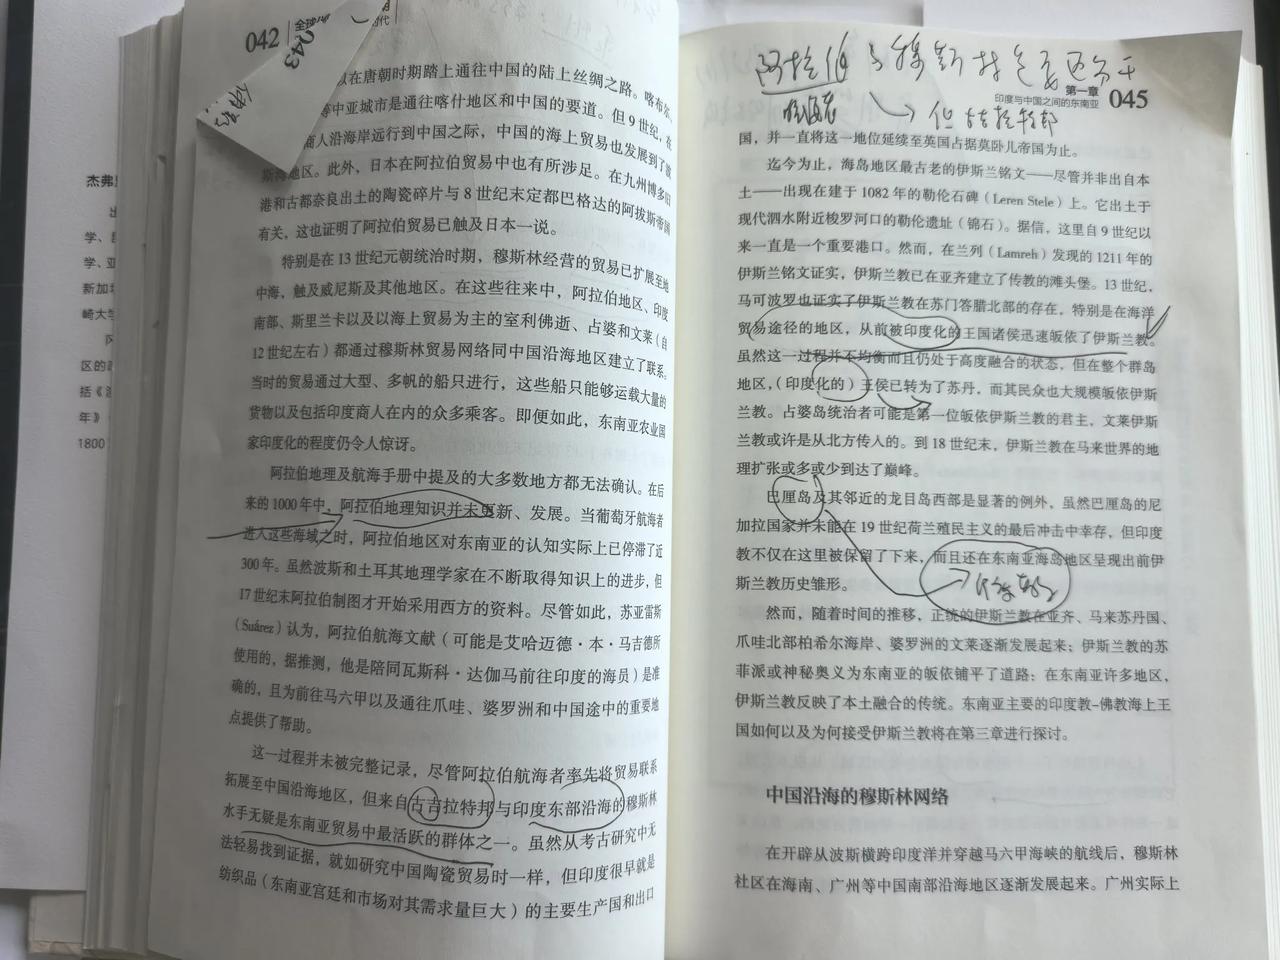 042
043
以在唐朝时期踏上通往中国的陆上丝绸之路。喀布尔、
等中亚城市是通往喀什地区和中国的要道。但9世纪,在
商人沿海岸远行到中国之际,中国的海上贸易也发展到了波
斯湾地区。此外,日本在阿拉伯贸易中也有所涉足。在九州博多旧
港和古都奈良出土的陶瓷碎片与8世纪末定都巴格达的阿拔斯帝国
有关,这也证明了阿拉伯贸易已触及日本一说。
特别是在13世纪元朝统治时期,穆斯林经营的贸易已扩展至地
中海,触及威尼斯及其他地区。在这些往来中,阿拉伯地区、印度
南部、斯里兰卡以及以海上贸易为主的室利佛逝、占婆和文莱(自
12世纪左右)都通过穆斯林贸易网络同中国沿海地区建立了联系。
当时的贸易通过大型、多帆的船只进行,这些船只能够运载大量的
货物以及包括印度商人在内的众多乘客。即便如此,东南亚农业国
家印度化的程度仍令人惊讶。
阿拉伯地理及航海手册中提及的大多数地方都无法确认。在后
来的1000年中,阿拉伯地理知识并未更新、发展。当葡萄牙航海者
进入这些海域之时,阿拉伯地区对东南亚的认知实际上已停滞了近
300年。虽然波斯和土耳其地理学家在不断取得知识上的进步,但
17世纪末阿拉伯制图才开始采用西方的资料。尽管如此,苏亚雷斯
(Suárez)认为,阿拉伯航海文献(可能是艾哈迈德·本·马吉德所
使用的,据推测,他是陪同瓦斯科·达伽马前往印度的海员)是准
确的,且为前往马六甲以及通往爪哇、婆罗洲和中国途中的重要地
点提供了帮助。
这一过程并未被完整记录,尽管阿拉伯航海者率先将贸易联系
拓展至中国沿海地区,但来自古吉拉特邦与印度东部沿海的穆斯林
水手无疑是东南亚贸易中最活跃的群体之一。虽然从考古研究中无
法轻易找到证据,就如研究中国陶瓷贸易时一样,但印度很早就是
纺织品(东南亚宫廷和市场对其需求量巨大)的主要生产国和出口
阿拉伯与穆斯林
第一章
印度与中国之间的东南亚 045
国,并一直将这一地位延续至英国占据莫卧儿帝国为止。
迄今为止,海岛地区最古老的伊斯兰铭文——尽管并非出自本
土——出现在建于1082年的勒伦石碑(Leren Stele)上。它出土于
现代泗水附近梭罗河口的勒伦遗址(锦石)。据信,这里自9世纪以
来一直是一个重要港口。然而,在兰列(Lamreh)发现的1211年的
伊斯兰铭文证实,伊斯兰教已在亚齐建立了传教的滩头堡。13世纪,
马可波罗也证实了伊斯兰教在苏门答腊北部的存在,特别是在海洋
贸易途径的地区,从前被印度化的王国诸侯迅速皈依了伊斯兰教。
虽然这一过程并不均衡而且仍处于高度融合的状态,但在整个群岛
地区,(印度化的)王侯已转为了苏丹,而其民众也大规模皈依伊斯
兰教。占婆岛统治者可能是第一位皈依伊斯兰教的君主,文莱伊斯
兰教或许是从北方传人的。到18世纪末,伊斯兰教在马来世界的地
理扩张或多或少到达了巅峰。
巴厘岛及其邻近的龙目岛西部是显著的例外,虽然巴厘岛的尼
加拉国家并未能在19世纪荷兰殖民主义的最后冲击中幸存,但印度
教不仅在这里被保留了下来,而且还在东南亚海岛地区呈现出前伊
斯兰教历史雏形。
然而,随着时间的推移,正统的伊斯兰教在亚齐、马来苏丹国、
爪哇北部柏希尔海岸、婆罗洲的文莱逐渐发展起来;伊斯兰教的苏
菲派或神秘奥义为东南亚的皈依铺平了道路;在东南亚许多地区,
伊斯兰教反映了本土融合的传统。东南亚主要的印度教-佛教海上王
国如何以及为何接受伊斯兰教将在第三章进行探讨。
中国沿海的穆斯林网络
在开辟从波斯横跨印度洋并穿越马六甲海峡的航线后,穆斯林
社区在海南、广州等中国南部沿海地区逐渐发展起来。广州实际上